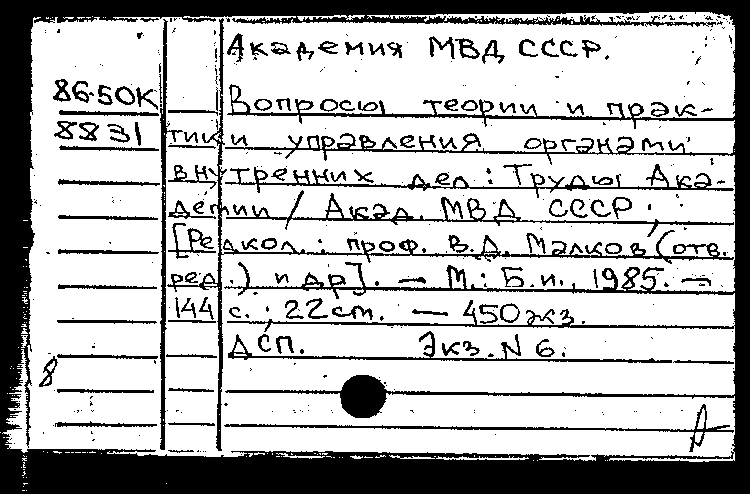 Академия МВД СССР.
86-50К Вопросы теории и прак-
8831 тики управления органами
внутренних дел : Труды Ака-
демии / Акад. МВД СССР ;
[Редкол.: проф. В.Д. Малков (отв.
ред.) и др]. — М.: Б.и., 1985. —
144 с. ; 22 см. — 450 экз.
ДСП. Экз. N 6.
8